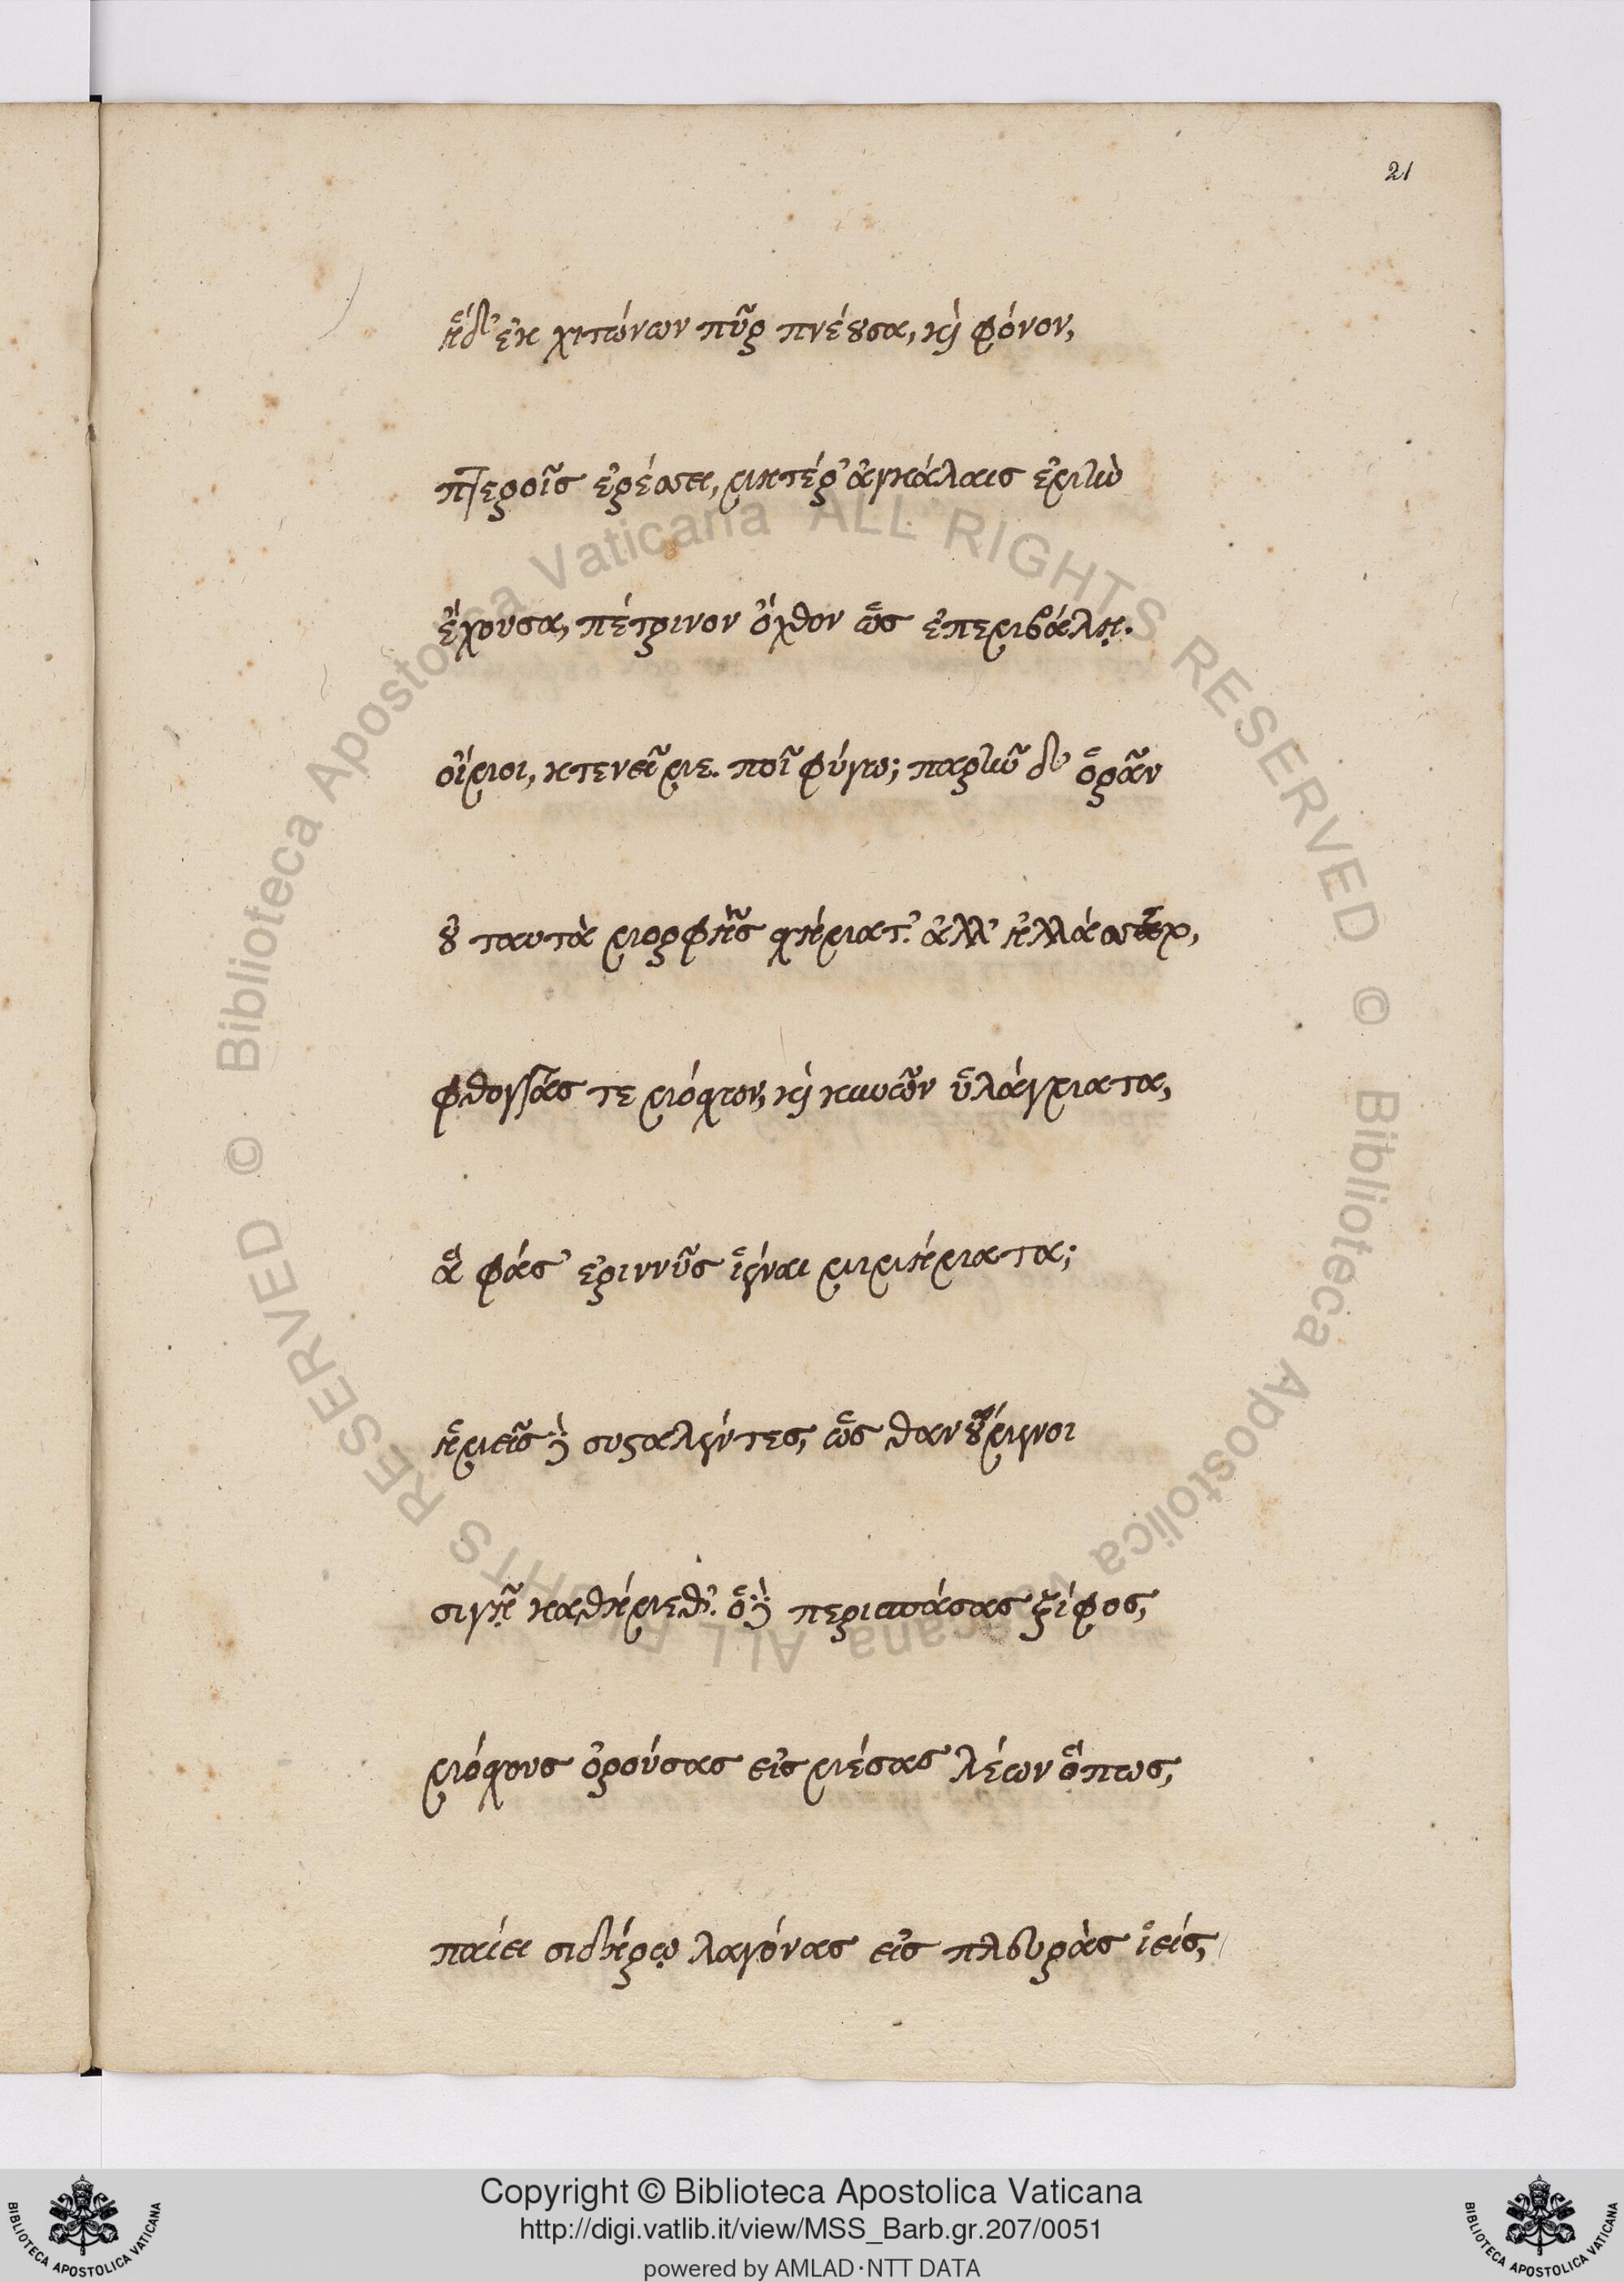 21
ἥδ' ἐκ χιτώνων πῦρ πνέουσα, καὶ φόνον,
πτεροῖς ἐρέσσει, μητέρ' ἀγκάλαις ἐμὴν
ἔχουσα, πέτρινον ὄχθον ὡς ἐπεμβάλῃ.
οἴμοι, κτενεῖ με. ποῖ φύγω; παρῆν δ' ὁρᾶν
οὐ ταυτὰ μορφῆς χήματ'. ἀλλ' ἠλλάσσετο,
φθογγάς τε μόχων, καὶ κυνῶν ὑλάγματα,
ἃ φάσ' ἐριννῦς ἱέναι μιμήματα;
ἡμεῖς δὲ συσταλέντες, ὡς θανούμενοι
σιγῇ καθήμεθ'. ὁ δὲ περισπάσας ξίφος,
μόχους ὀρούσας εἰς μέσας λέων ὅπως,
παίει σιδήρῳ λαγόνας εἰς πλευρὰς ἱείς,
© Biblioteca Apostolica Vaticana ALL RIGHTS RESERVED © Biblioteca Apostolica Vaticana ALL RIGHTS RESERVED
Copyright © Biblioteca Apostolica Vaticana
http://digi.vatlib.it/view/MSS_Barb.gr.207/0051
powered by AMLAD·NTT DATA
BIBLIOTECA APOSTOLICA VATICANA
BIBLIOTECA APOSTOLICA VATICANA